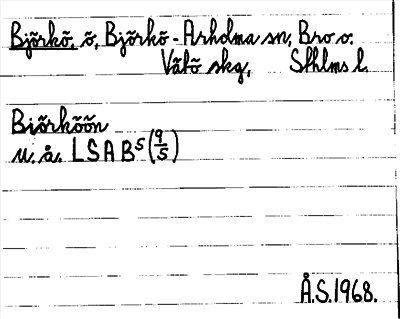 Björkö, ö, Björkö-Arholma sn, Bro o.
Vätö skg, Sthlms l.
Biörköön
u. å. LSA B5 (9/5)
Å.S.1968.